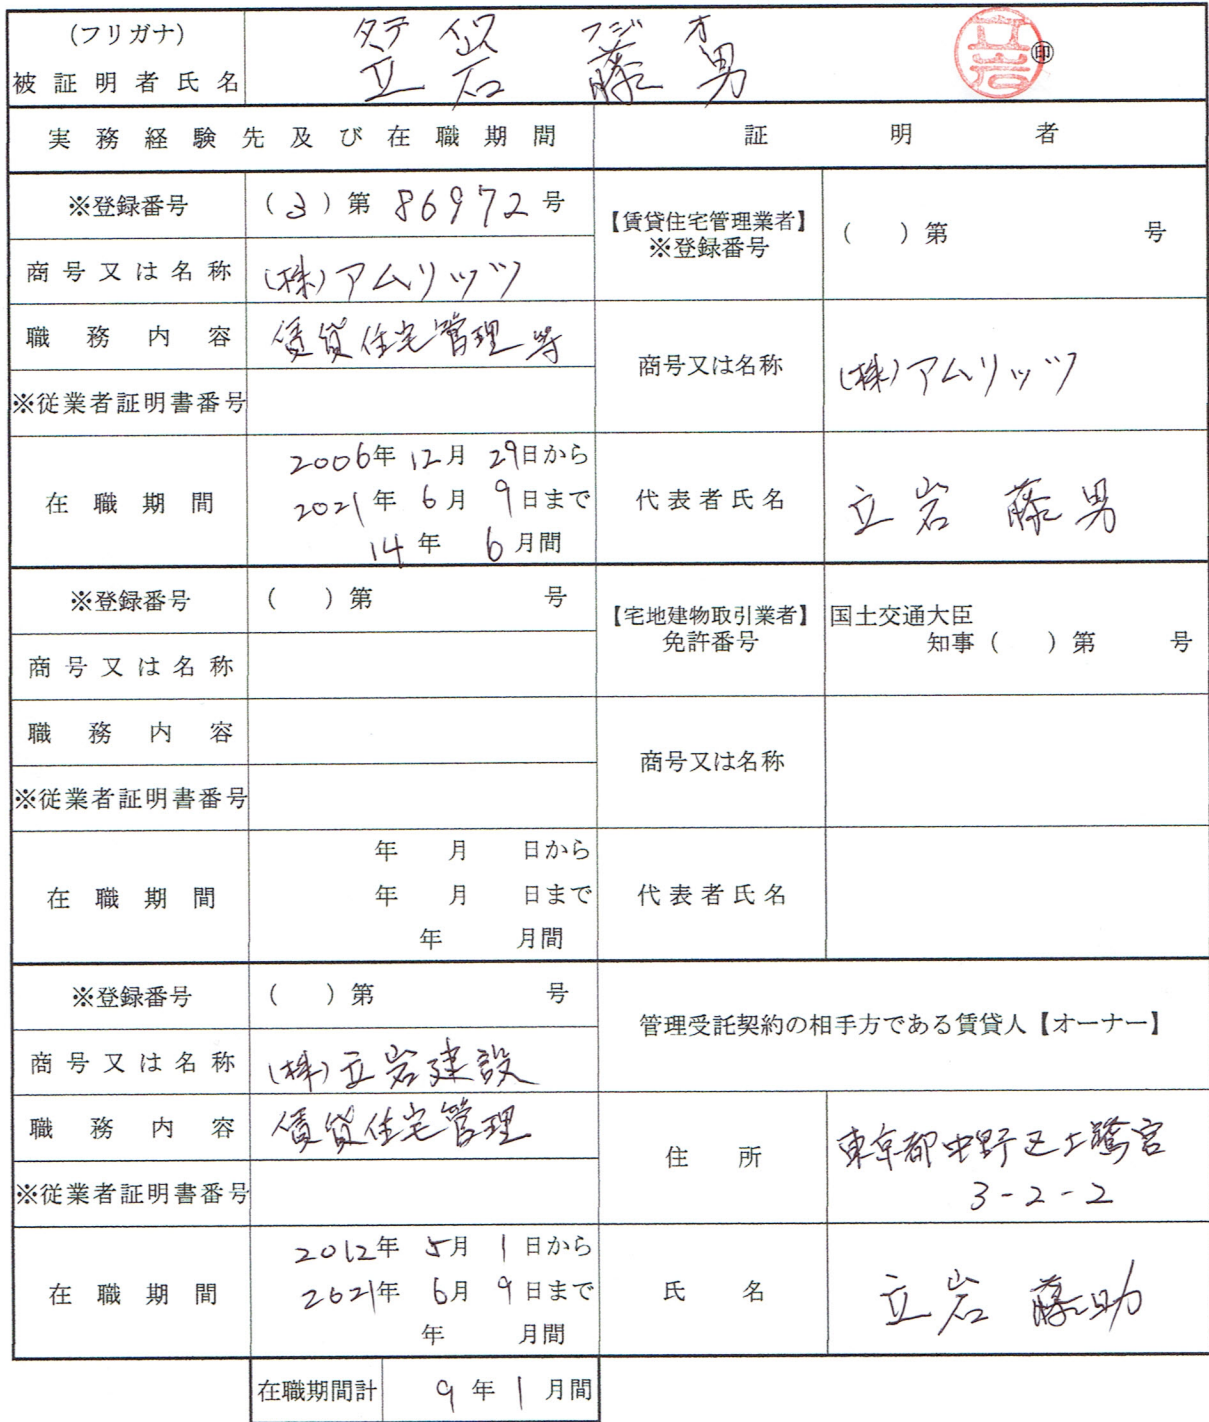 (フリガナ) タテ イワ フジ オ
被証明者氏名 立岩 藤男 立岩 ㊞
実務経験先及び在職期間 証明者
※登録番号 (3)第 86972 号
【賃貸住宅管理業者】
※登録番号 ( )第 号
商号又は名称 (株)アムリッツ
職務内容 賃貸住宅管理等
商号又は名称 (株)アムリッツ
※従業者証明書番号
在職期間
2006年 12月 29日から
2021年 6月 9日まで
14年 6月間
代表者氏名 立岩 藤男
※登録番号 ( )第 号
【宅地建物取引業者】
免許番号
国土交通大臣
知事( )第 号
商号又は名称
職務内容
商号又は名称
※従業者証明書番号
在職期間
年 月 日から
年 月 日まで
年 月間
代表者氏名
※登録番号 ( )第 号
管理受託契約の相手方である賃貸人【オーナー】
商号又は名称 (株)立岩建設
職務内容 賃貸住宅管理
※従業者証明書番号
住所
東京都中野区上鷺宮
3-2-2
在職期間
2012年 5月 1日から
2021年 6月 9日まで
年 月間
氏名 立岩 藤助
在職期間計 9年 1月間